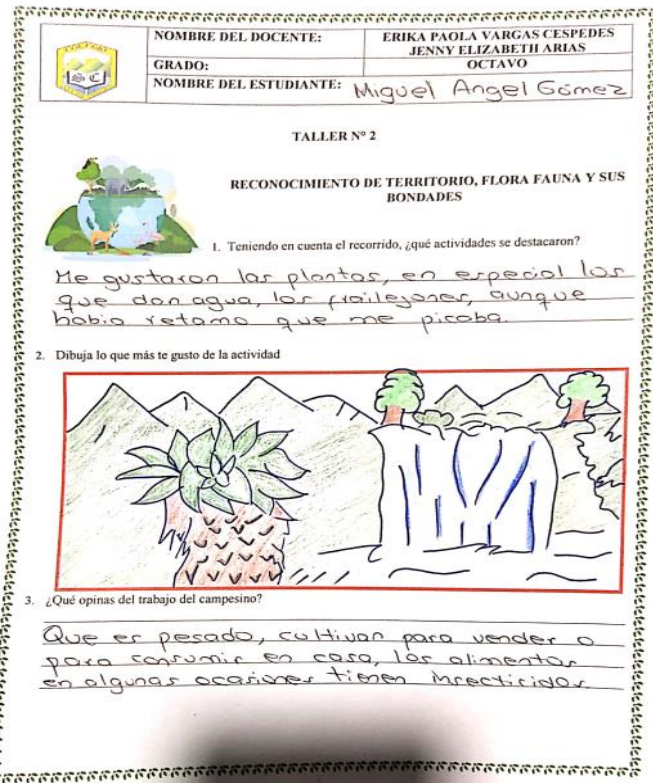 NOMBRE DEL DOCENTE: ERIKA PAOLA VARGAS CESPEDES
JENNY ELIZABETH ARIAS
GRADO: OCTAVO
NOMBRE DEL ESTUDIANTE: Miguel Angel Gómez
S C
TALLER N° 2
RECONOCIMIENTO DE TERRITORIO, FLORA FAUNA Y SUS
BONDADES
1. Teniendo en cuenta el recorrido, ¿qué actividades se destacaron?
Me gustaron las plantas, en especial los
que dan agua, los frailejones, aunque
habia retamo que me picaba
2. Dibuja lo que más te gusto de la actividad
3. ¿Qué opinas del trabajo del campesino?
Que es pesado, cultivan para vender o
para consumir en casa, los alimentos
en algunas ocasiones tienen insecticidas